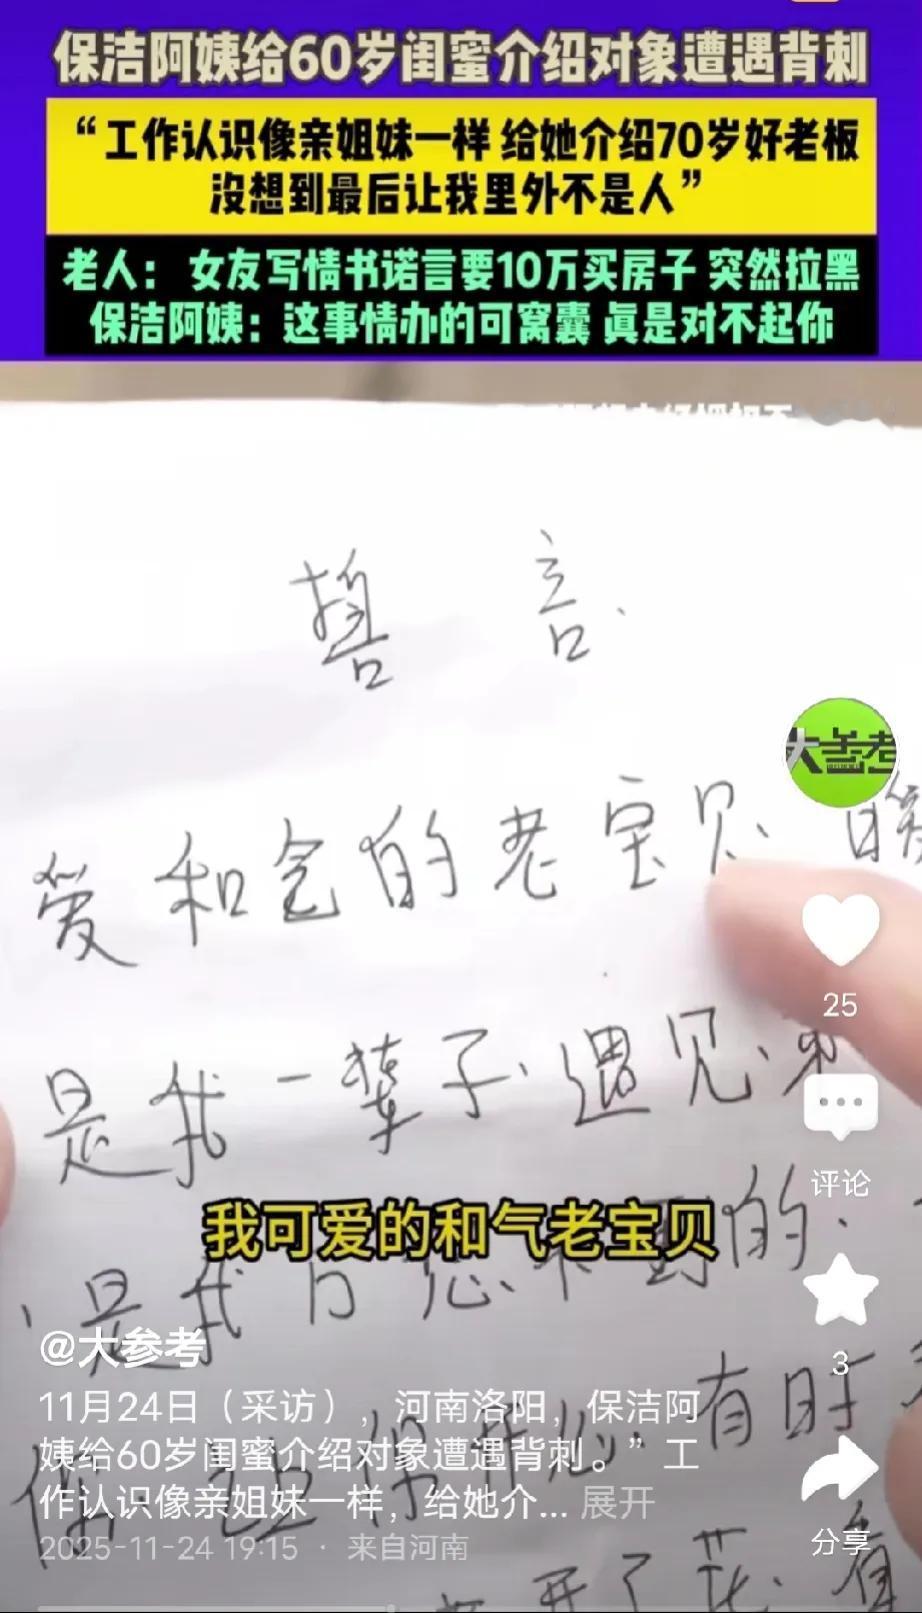 保洁阿姨给60岁闺蜜介绍对象遭遇背刺
“工作认识像亲姐妹一样 给她介绍70岁好老板
没想到最后让我里外不是人”
老人：女友写情书诺言要10万买房子 突然拉黑
保洁阿姨：这事情办的可窝囊 真是对不起你
誓言
大参考
爱和气的老宝贝
25
是我一辈子遇见
评论
我可爱的和气老宝贝
的
是我
3
@大参考
有时
11月24日（采访），河南洛阳，保洁阿
姨给60岁闺蜜介绍对象遭遇背刺。”工
作认识像亲姐妹一样，给她介... 展开
分享
2025-11-24 19:15 · 来自河南
开了花 看